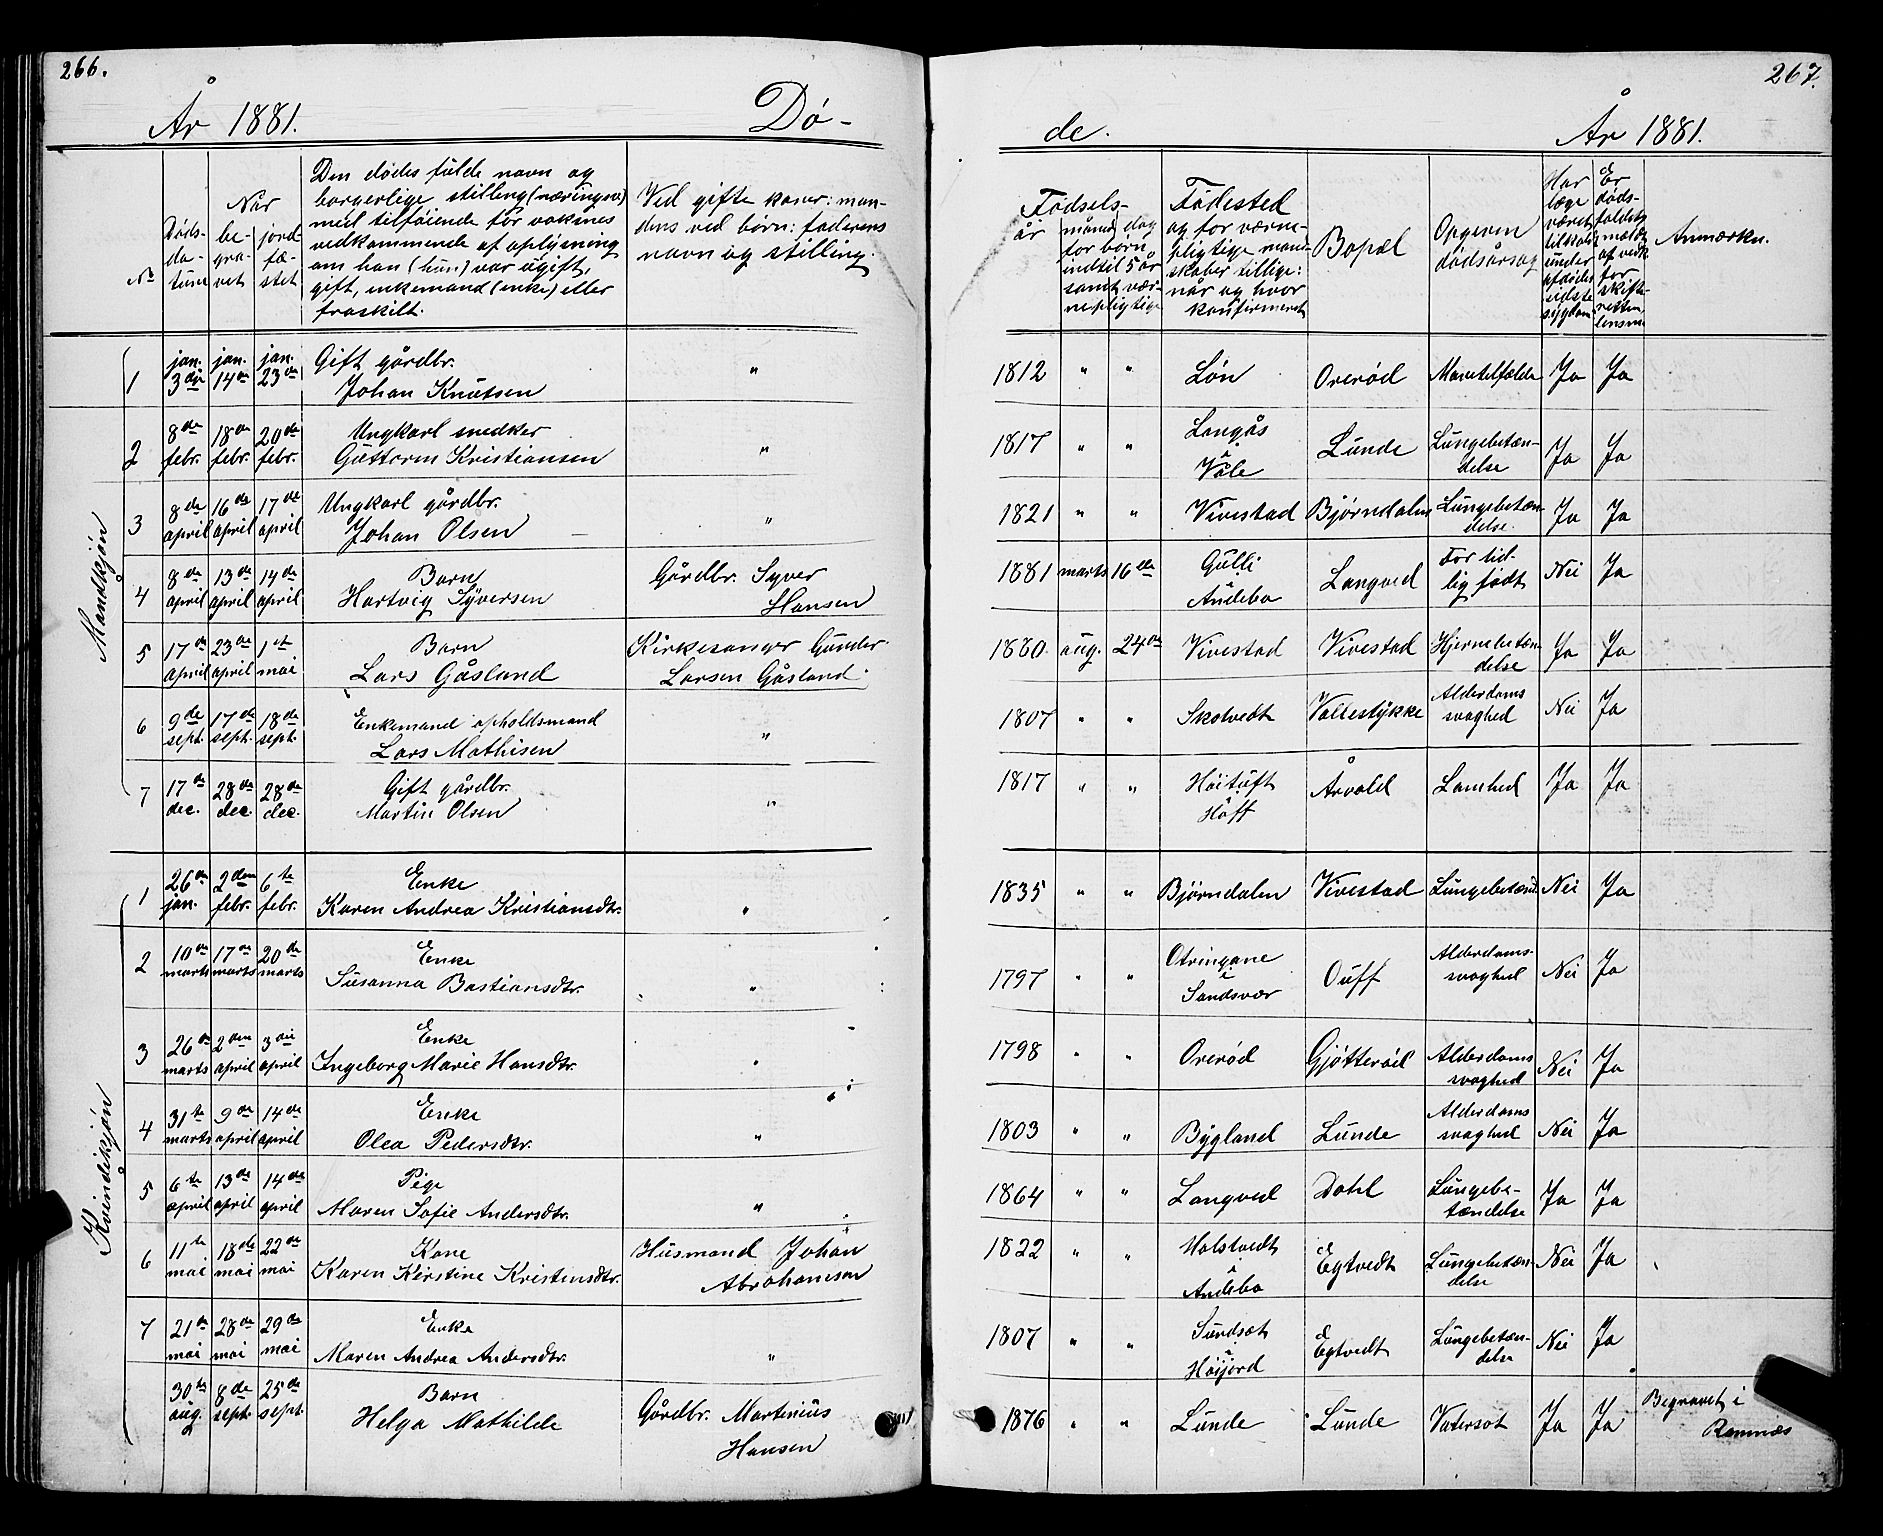 266.
År 1881.
Dø-
№
Når
Døds-
da-
tum
be-
gra-
vet
jord
fæ-
stet
Den dødes fulde navn og
borgerlige stilling (næringsv)
med tilføiende for voksnes
vedkommende af oplysning
om han (hun) var ugift,
gift, enkemand (enke) eller
fraskilt.
Ved gifte koner: man-
dens ved børn: faderens
navn og stilling.
Mandkjøn
1
jan. 3die
jan. 14de
jan. 23de
Gift gårdbr.
Johan Knutsen
"
2
8de febr.
18de febr.
20de febr.
Ungkarl snedker
Guttorm Kristiansen
"
3
8de april
16de april
17de april
Ungkarl gårdbr.
Johan Olsen
"
4
8de april
13de april
14de april
Barn
Hartvig Syversen
Gårdbr. Syver
Hansen
5
17de april
23de april
1ste mai
Barn
Lars Gåsland
Kirkesanger Gunder
Larsen Gåsland
6
9de sept.
17de sept.
18de sept.
Enkemand opholdsmand
Lars Mathisen
"
7
17de dec.
28de dec.
28de dec.
Gift gårdbr.
Martin Olsen
"
Kvindekjøn
1
26de jan.
2den febr.
6te febr.
Enke
Karen Andrea Kristiansdtr.
"
2
10de marts
17de marts
20de marts
Enke
Susanna Bastiansdtr.
"
3
26de marts
2den april
3die april
Enke
Ingeborg Marie Hansdtr.
"
4
31te marts
9de april
14de april
Enke
Olea Pedersdtr.
"
5
6te april
13de april
14de april
Pige
Maren Sofie Andersdtr.
"
6
11te mai
18de mai
22de mai
Kone
Karen Kirstine Kristensdtr.
Husmand Johan
Abrahamsen
7
21de mai
28de mai
29de mai
Enke
Maren Andrea Andersdtr.
"
30te aug.
8de sept.
25de sept.
Barn
Helga Mathilde
Gårdbr. Martinius
Hansen
267.
de.
År 1881.
Fødsels-
år
måned dag
for børn
indtil 5 år
samt vær-
nepligtige
Fødested
og for værne-
pligtige mand-
skaber tillige:
når og hvor
konfirmeret
Bopæl
Opgiven
dødsårsag
Har
læge
været
tilstede
under
afdødes
sidste
sygdom
Er
døds-
faldet
meldt
af vedk.
for
skifte-
retten
lensm.
Anmærkn.
1812 " " Løn Ørerød Mavetilfælde Ja Ja
1817 " " Langås
i
Våle Lunde Lungebetæn-
delse Ja Ja
1821 " " Vivestad Bjørndalen Lungebetæn-
delse Ja Ja
1881 marts 16de Gulli
i
Andebo Langved For tid-
lig født Nei Ja
1880 aug. 24de Vivestad Vivestad Hjernebetæn-
delse Ja Ja
1807 " " Skotvedt Vallestykke Alderdoms
svaghed Nei Ja
1817 " " Høituft
i
Hoff Årvold Lamhed Ja Ja
1835 " " Bjørndalen Vivestad Lungebetænd. Nei Ja
1797 " " Otringane
i
Sandsvær Ouff Alderdoms-
svaghed Nei Ja
1798 " " Ørerød Gjøtterød Alderdoms
svaghed Nei Ja
1803 " " Bygland Lunde Alderdoms
svaghed Nei Ja
1864 " " Langved Dahl Lungebe-
tændelse Ja Ja
1822 " " Halstvedt
i
Andebo Egtvedt Lungebetæn-
delse Nei Ja
1807 " " Sundset
i
Høijord Egtvedt Lungebetæn-
delse Nei Ja
1876 " " Lunde Lunde Vatersot Ja Ja Begravet i
Ramnæs